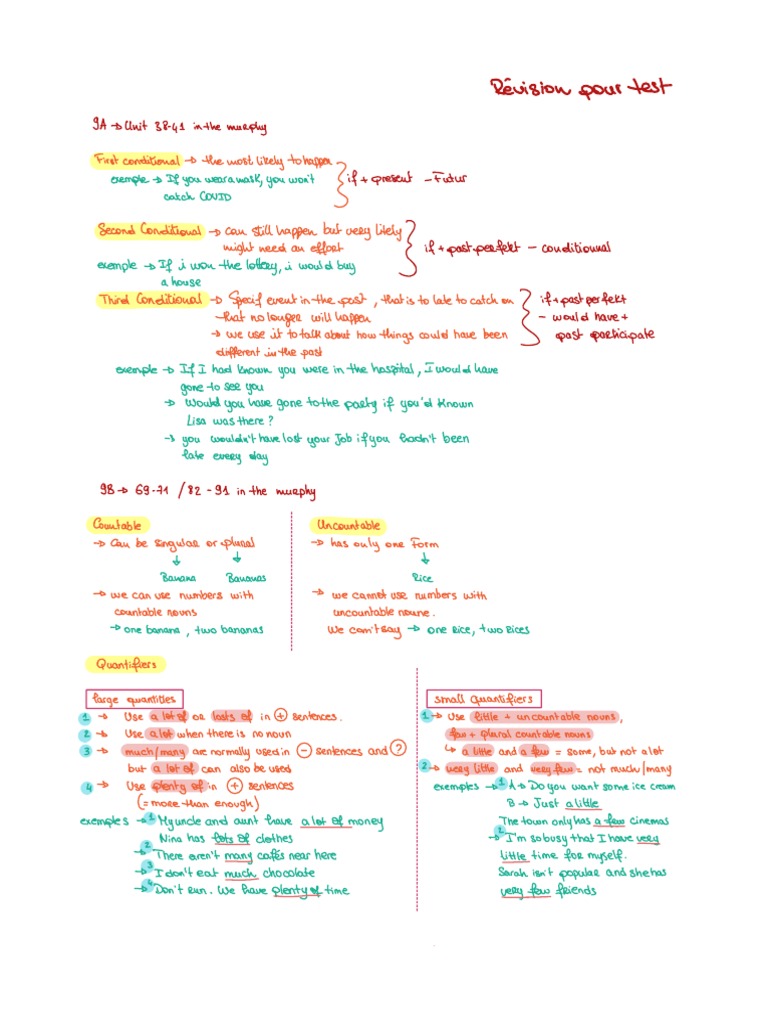 Révision pour test
9A → Unit 38-41 in the murphy
First conditional → the most likely to happen
exemple → If you wear a mask, you won't
catch COVID
if + present - Futur
Second Conditional → can still happen but very likely
might need an effort
exemple → If i won the lottery, i would buy
a house
if + past perfekt - conditionnal
Third Conditional → Specif event in the past, that is to late to catch on
that no longer will happen
→ we use it to talk about how things could have been
different in the past
if + past perfekt
- would have +
past participate
exemple → If I had known you were in the hospital, I would have
gone to see you
→ Would you have gone to the party if you'd known
Lisa was there?
→ you wouldn't have lost your Job if you hadn't been
late every day
9B → 69-71 / 82 - 91 in the murphy
Countable
→ Can be singular or plural
↓ ↓
Banana Bananas
→ we can use numbers with
countable nouns
→ one banana, two bananas
Uncountable
→ has only one Form
↓
Rice
→ we cannot use numbers with
uncountable noune.
We can't say → one Rice, two Rices
Quantifiers
large quantities
1 → Use a lot of or losts of in + sentences.
2 → Use a lot when there is no noun
3 → much/many are normally used in - sentences and ?
but a lot of can also be used
4 → Use plenty of in + sentences
(= more than enough)
exemples → 1 My uncle and aunt have a lot of money
Nina has lots of clothes
→ 2 There aren't many cafés near here
→ 3 I don't eat much chocolate
→ 4 Don't run. We have plenty of time
small quantifiers
1 → Use little + uncountable nouns,
few + plural countable nouns
↳ a little and a few = some, but not a lot
2 → very little and very few = not much/many
exemples → 1 A → Do you want some ice cream
B → Just a little
The town only has a few cinemas
→ 2 I'm so busy that I have very
little time for myself.
Sarah isn't popular and she has
very few friends